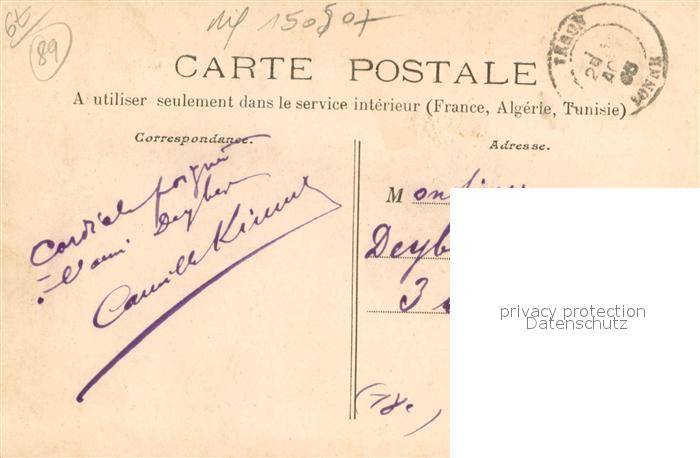 89
CARTE POSTALE
A utiliser seulement dans le service intérieur (France, Algérie, Tunisie)
Correspondance.
Adresse.
YONNE
Cordiale poignée
à l'ami Deyber
Camille
Monsieur
Deyb
3
privacy protection
Datenschutz